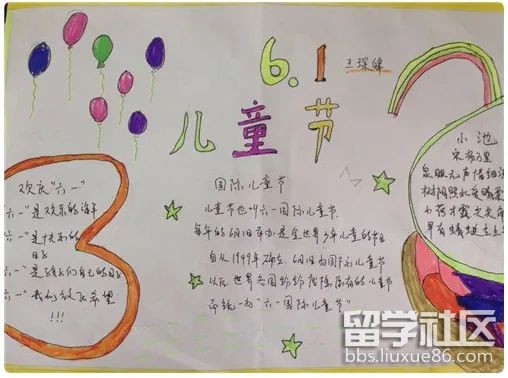 6.1
王琛
儿童节
欢庆"六一"
"六一"是欢乐的海洋
"六一"是快乐的
日子
"六一"是我们自己的日子
"六一"我们放飞希望
!!!
国际儿童节
儿童节也叫六一国际儿童节.
每年的6月1日举办是全世界少年儿童的节日
自从1949年确立6月1日为国际儿童节
以后世界各国纷纷废除原有的儿童节
而统一为"六一国际儿童节"
小池
宋 杨万里
泉眼无声惜细
树阴照水爱晴柔
小荷才露尖尖角
早有蜻蜓立上
留学社区
bbs.liuxue86.com